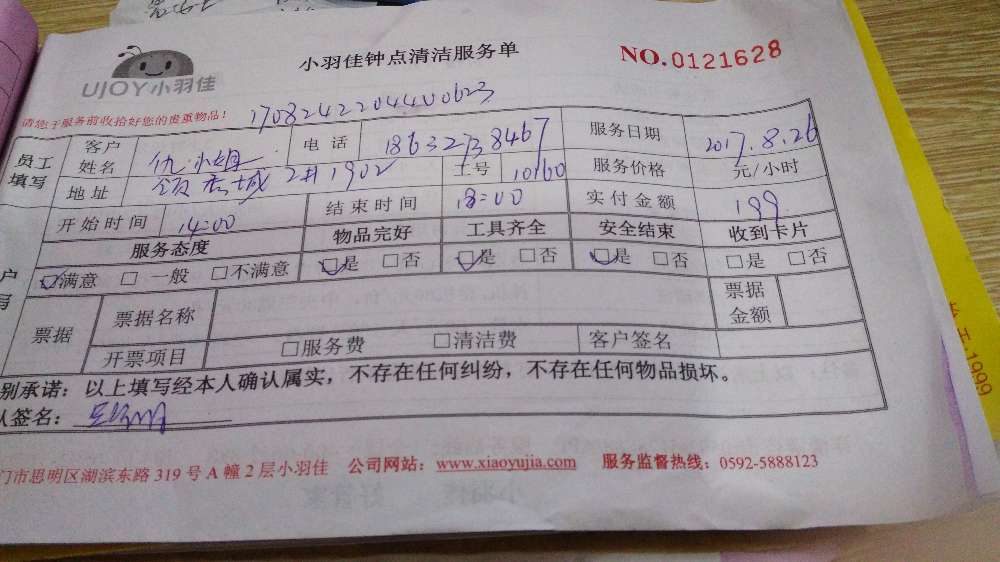 小羽佳钟点清洁服务单
NO.0121628
UJOY小羽佳
请您于服务前收拾好您的贵重物品!
员工填写 客户姓名 仇小姐 电话 服务日期 2017.8.26
地址 2#1902 工号 10160 服务价格 元/小时
开始时间 14:00 结束时间 18:00 实付金额 199
服务态度 物品完好 工具齐全 安全结束 收到卡片
☑满意 □一般 □不满意 ☑是 □否 ☑是 □否 ☑是 □否 □是 □否
票据 票据名称 票据金额
开票项目 □服务费 □清洁费 客户签名
别承诺:以上填写经本人确认属实,不存在任何纠纷,不存在任何物品损坏。
签名:
门市思明区湖滨东路 319 号 A 幢 2 层小羽佳 公司网站:www.xiaoyujia.com 服务监督热线:0592-5888123